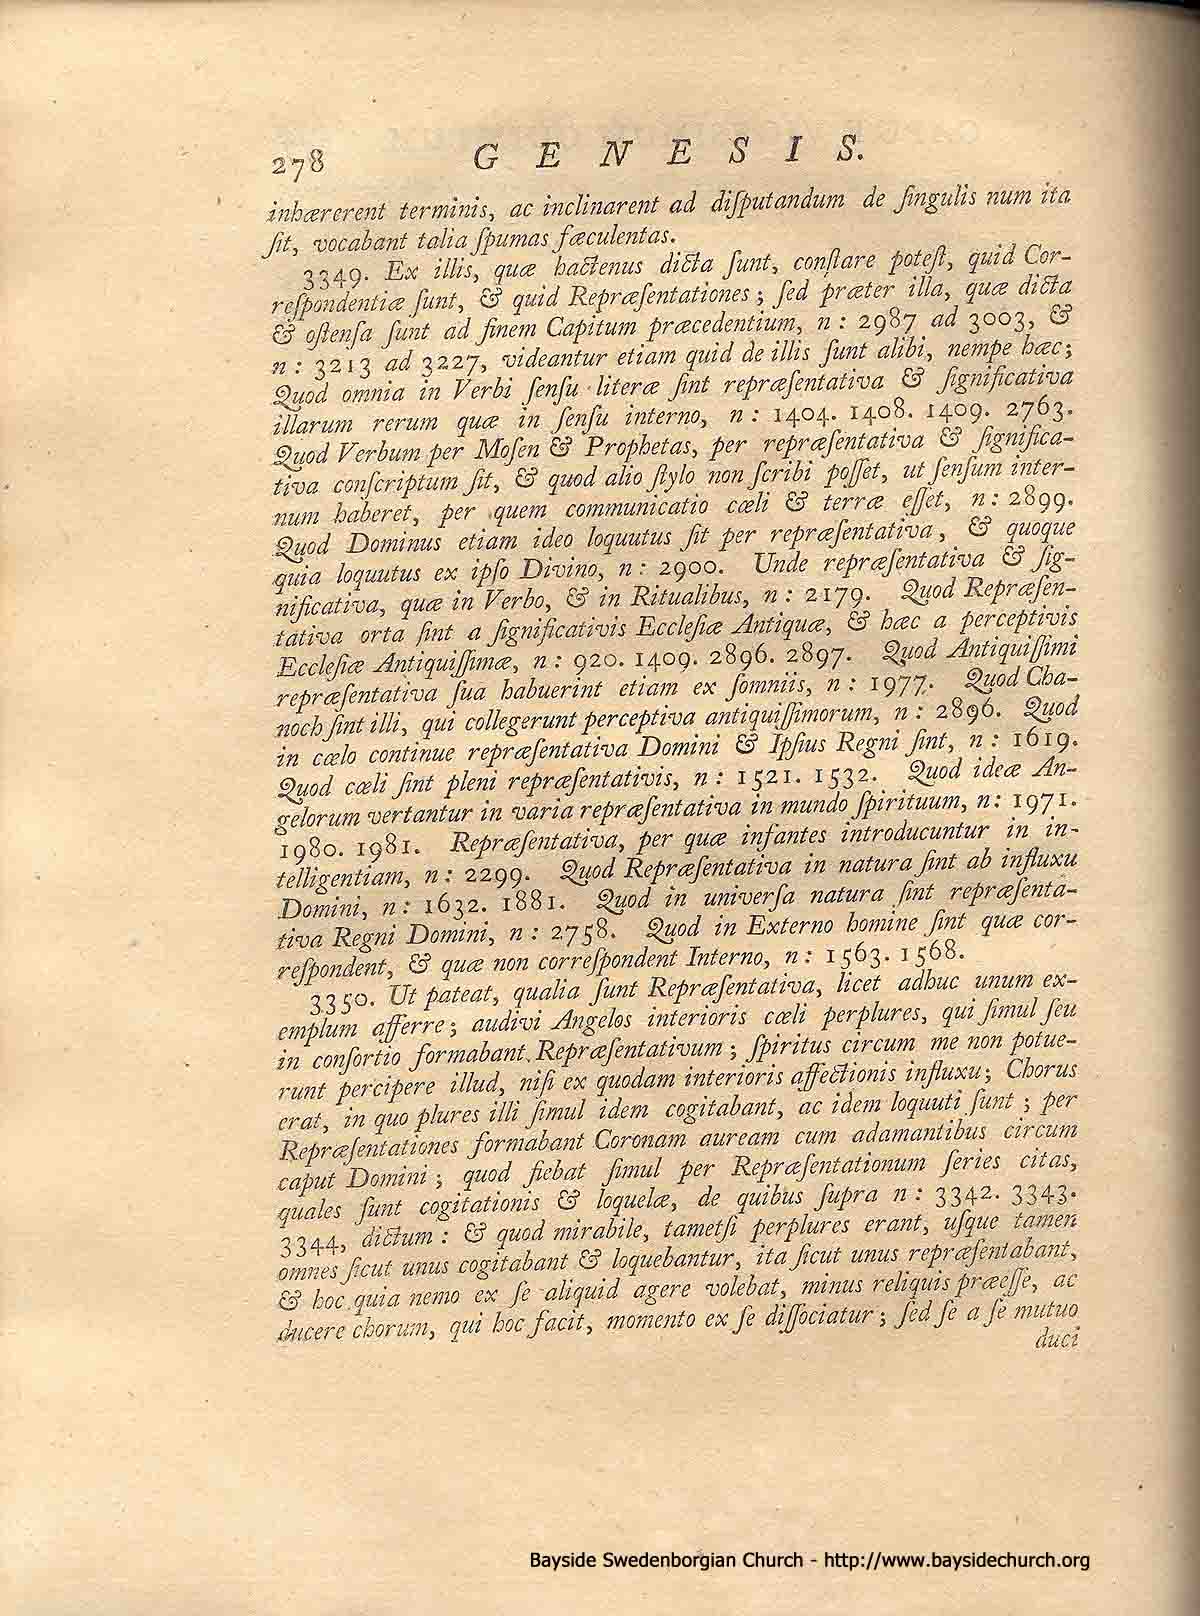 278 GENESIS.
inhærerent terminis, ac inclinarent ad diſputandum de ſingulis num ita
ſit, vocabant talia ſpumas fæculentas.
3349. Ex illis, quæ hactenus dicta ſunt, conſtare poteſt, quid Cor-
reſpondentiæ ſunt, & quid Repræſentationes; ſed præter illa, quæ dicta
& oſtenſa ſunt ad finem Capitum præcedentium, n: 2987 ad 3003, &
n: 3213 ad 3227, videantur etiam quid de illis ſunt alibi, nempe hæc;
Quod omnia in Verbi ſenſu literæ ſint repræſentativa & ſignificativa
illarum rerum quæ in ſenſu interno, n: 1404. 1408. 1409. 2763.
Quod Verbum per Moſen & Prophetas, per repræſentativa & ſignifica-
tiva conſcriptum ſit, & quod alio ſtylo non ſcribi poſſet, ut ſenſum inter-
num haberet, per quem communicatio cœli & terræ eſſet, n: 2899.
Quod Dominus etiam ideo loquutus ſit per repræſentativa, & quoque
quia loquutus ex ipſo Divino, n: 2900. Unde repræſentativa & ſig-
nificativa, quæ in Verbo, & in Ritualibus, n: 2179. Quod Repræſen-
tativa orta ſint a ſignificativis Eccleſiæ Antiquæ, & hæc a perceptivis
Eccleſiæ Antiquiſſimæ, n: 920. 1409. 2896. 2897. Quod Antiquiſſimi
repræſentativa ſua habuerint etiam ex ſomniis, n: 1977. Quod Cha-
noch ſint illi, qui collegerunt perceptiva antiquiſſimorum, n: 2896. Quod
in cælo continue repræſentativa Domini & Ipſius Regni ſint, n: 1619.
Quod cœli ſint pleni repræſentativis, n: 1521. 1532. Quod ideæ An-
gelorum vertantur in varia repræſentativa in mundo ſpirituum, n: 1971.
1980. 1981. Repræſentativa, per quæ infantes introducuntur in in-
telligentiam, n: 2299. Quod Repræſentativa in natura ſint ab influxu
Domini, n: 1632. 1881. Quod in univerſa natura ſint repræſenta-
tiva Regni Domini, n: 2758. Quod in Externo homine ſint quæ cor-
reſpondent, & quæ non correſpondent Interno, n: 1563. 1568.
3350. Ut pateat, qualia ſunt Repræſentativa, licet adhuc unum ex-
emplum afferre; audivi Angelos interioris cœli perplures, qui ſimul ſeu
in conſortio formabant Repræſentativum; ſpiritus circum me non potue-
runt percipere illud, niſi ex quodam interioris affectionis influxu; Chorus
erat, in quo plures illi ſimul idem cogitabant, ac idem loquuti ſunt; per
Repræſentationes formabant Coronam auream cum adamantibus circum
caput Domini; quod fiebat ſimul per Repræſentationum ſeries citas,
quales ſunt cogitationis & loquelæ, de quibus ſupra n: 3342. 3343.
3344, dictum: & quod mirabile, tametſi perplures erant, uſque tamen
omnes ſicut unus cogitabant & loquebantur, ita ſicut unus repræſentabant,
& hoc quia nemo ex ſe aliquid agere volebat, minus reliquis præeſſe, ac
ducere chorum, qui hoc facit, momento ex ſe diſſociatur; ſed ſe a ſe mutuo
duci
Bayside Swedenborgian Church - http://www.baysidechurch.org